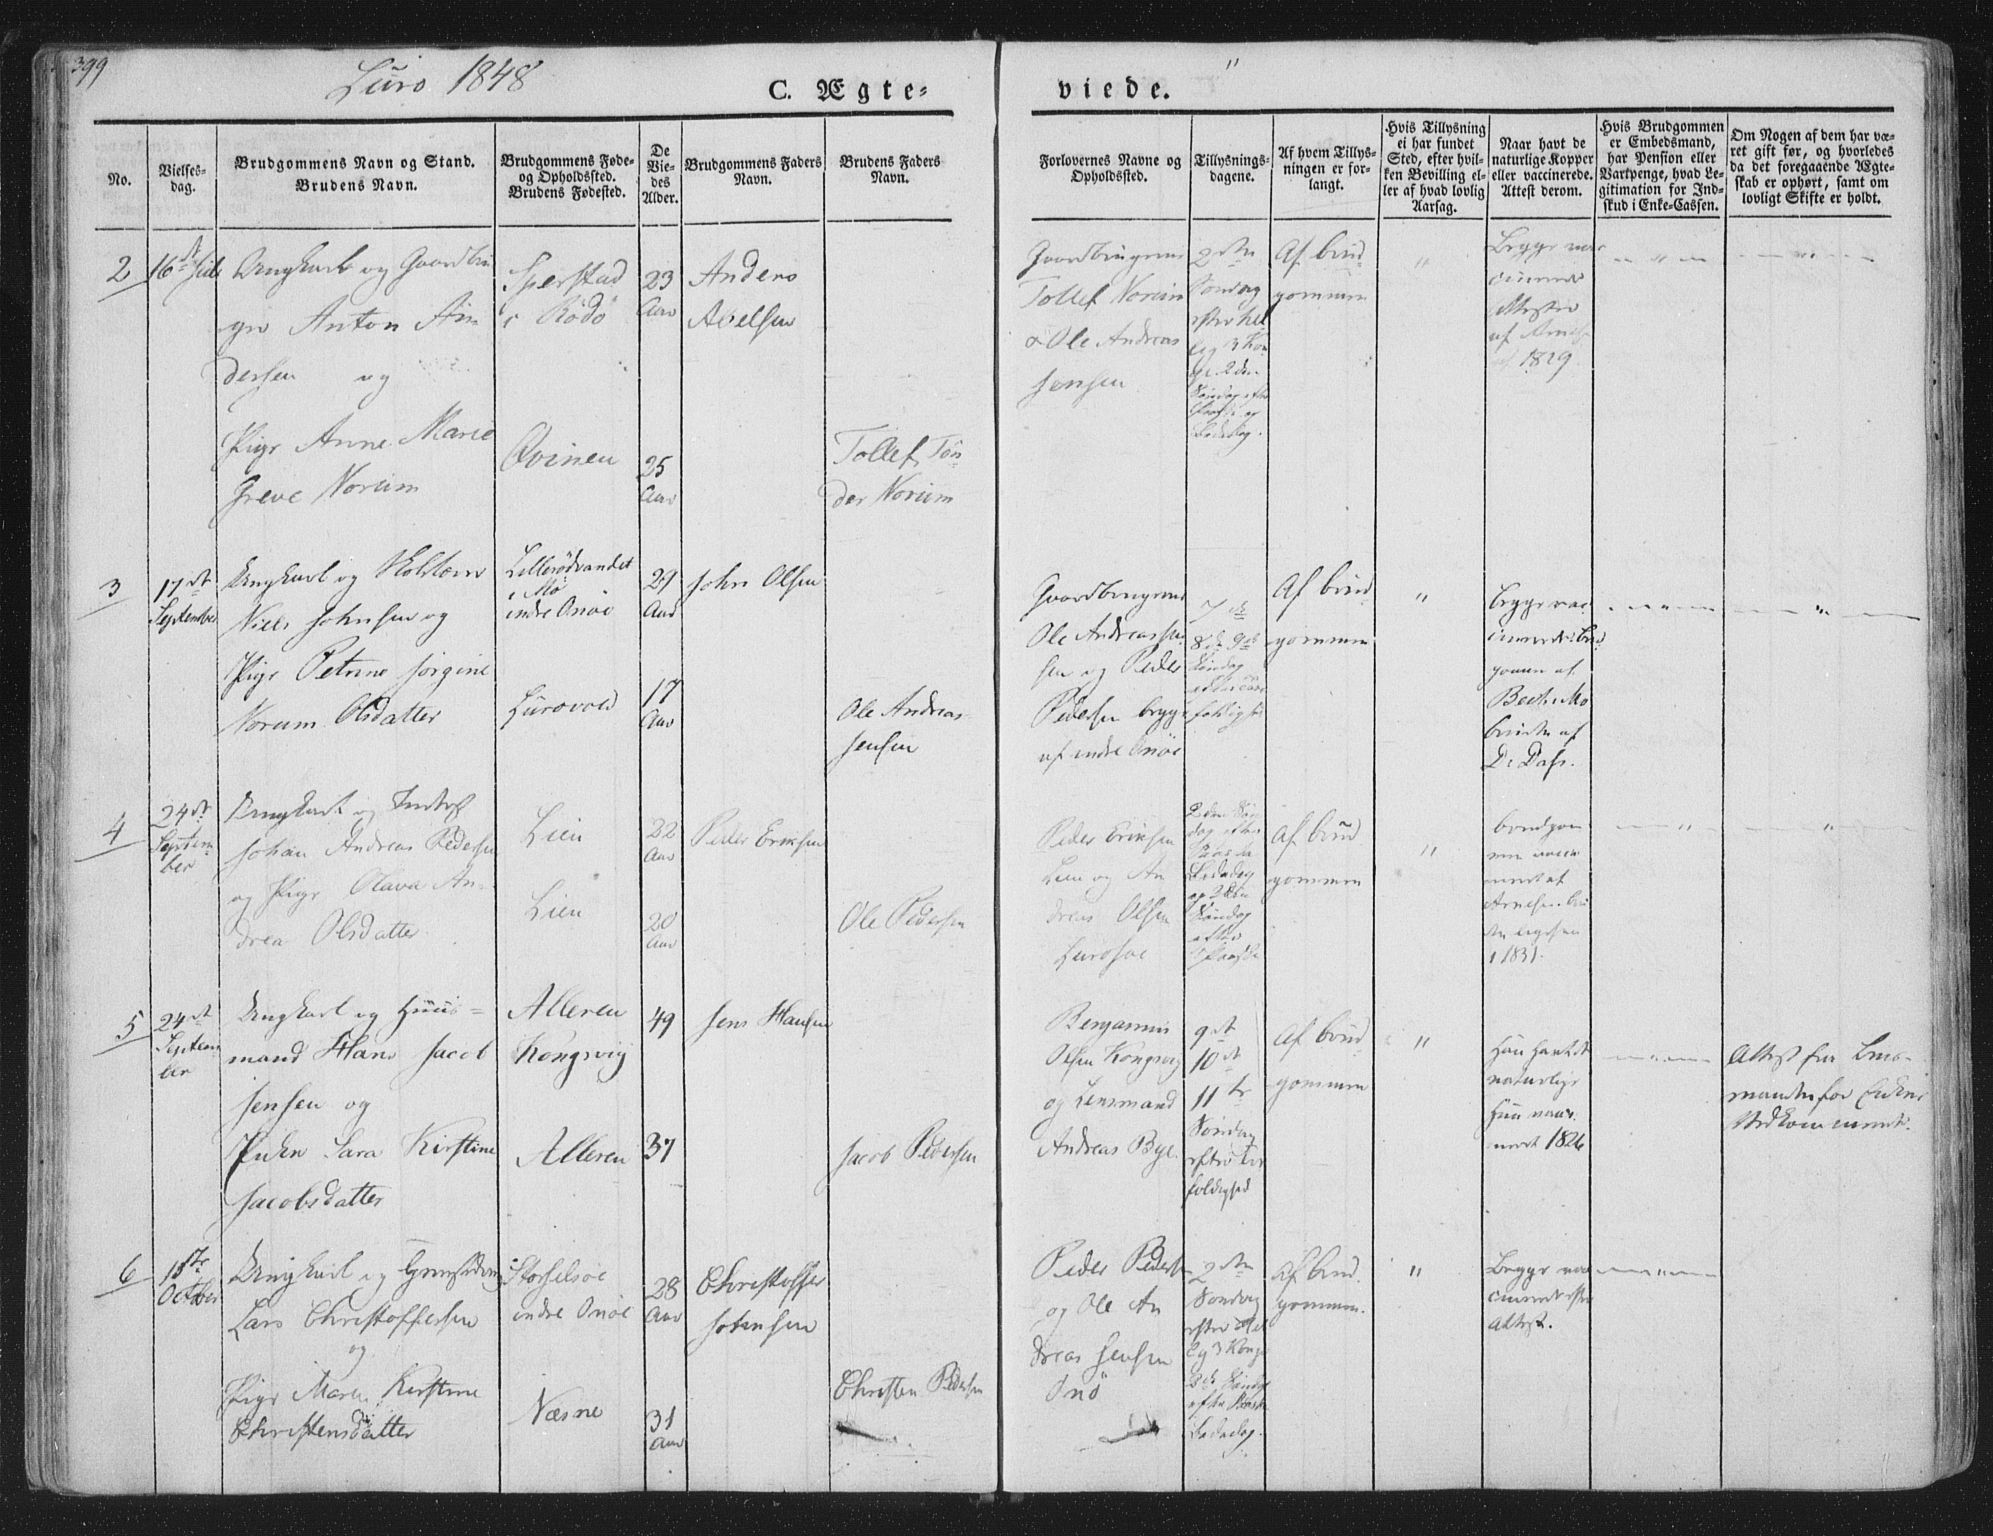 399
Luro 1848
C. Ægte-
viede.
No.
Vielses-
dag.
Brudgommens Navn og Stand.
Brudens Navn.
Brudgommens Føde-
og Opholdssted.
Brudens Fødested.
De
Vie-
des
Alder.
Brudgommens Faders
Navn.
Brudens Faders
Navn.
Forlovernes Navne og
Opholdssted.
Tillysnings-
dagene.
Af hvem Tillys-
ningen er for-
langt.
Hvis Tillysning
ei har fundet
Sted, efter hvil-
ken Bevilling el-
ler af hvad lovlig
Aarsag.
Naar havt de
naturlige Kopper
eller vaccinerede.
Attest derom.
Hvis Brudgommen
er Embedsmand,
har Pension eller
Vartpenge, hvad Le-
gitimation for Ind-
skud i Enke-Cassen.
Om Nogen af dem har væ-
ret gift før, og hvorledes
da det foregaaende Ægte-
skab er ophørt, samt om
lovligt Skifte er holdt.
2
16de Juli
Ungkarl og Gaardbru
ger Anton An-
dersen og
Pige Anne Marie
Greve Norum
Sperstad
i Rödö
Qvinen
23
Aar
25
Aar
Anders
Abelsen
Tollef Tön
der Norum
Gaardbrugerne
Tollef Norum
& Ole Andreas
Jensen
2den
Søndag
efter hel
lig 3 Kon
ger 2den
Søndag efter
Paaske og
Bededag.
Af brud-
gommen
"
Begge vac
cinerede
Attester
af
1829
3
17de
September
Ungkarl og
Niels Johnsen og
Pige Petrine Jörgine
Norum Olsdatter
Lillerödvandet
i Mo
indre Onöe
Lurovold
29
Aar
17
Aar
John Olsen
Ole Andreas
Jensen
Gaardbrugerne
Ole Andreas Jen
sen og Peder
Pedersen begge
af indre Onöe
7de
8de 9de
Søndag
Af brud
gommen
"
Begge vac
cinerede brud
gommen af
Mo
bruden af
D. Dass.
4
24de
Septem-
ber
Ungkarl og
Johan Andreas Pedersen
og Pige Olava An-
drea Olsdatter
Lien
Lien
22
Aar
20
Aar
Peder Eriksen
Ole Pedersen
Peder Eriksen
Lien og An
dreas Olsen
Luroöe
2den Søn
dag efter
Paaske
Bededag
og 2den
Søndag
efter
Af brud
gommen
"
brudgom
men vacci
neret af
Arnesen
i 1831.
5
24de
Septem
ber
Ungkarl og Huus-
mand Hans Jacob
Jensen og
Sara Kirstine
Jacobsdatter
Alleren
Kongsvig
Alleren
49
37
Jens Hansen
Jacob Pedersen
Benjamin
Olsen Kongsvig
og Lensmand
Andreas Bye.
9de
10de
11te
Søndag
efter Tre
foldighed
Af brud-
gommen
"
Han havt de
naturlige
Hun vacci
neret 1826
Attest fra Lens-
manden for Enkens
Vedkommende.
6
15de
October
Ungkarl og
Lars Christoffersen
og
Pige Maren Kirstine
Christensdatter
Storselsöe
indre Onöe
Næsne
28
Aar
31
Aar
Christoffer
Johnsen
Christen Pedersen
Peder Pedersen
og Ole An
dreas Jensen
Onö
2den
Søndag
efter Hel
lig 3 Konge
2de Søndag
efter Paaske
Bededag.
Af brud-
gommen.
"
Begge vac
cinerede efter
Attest.